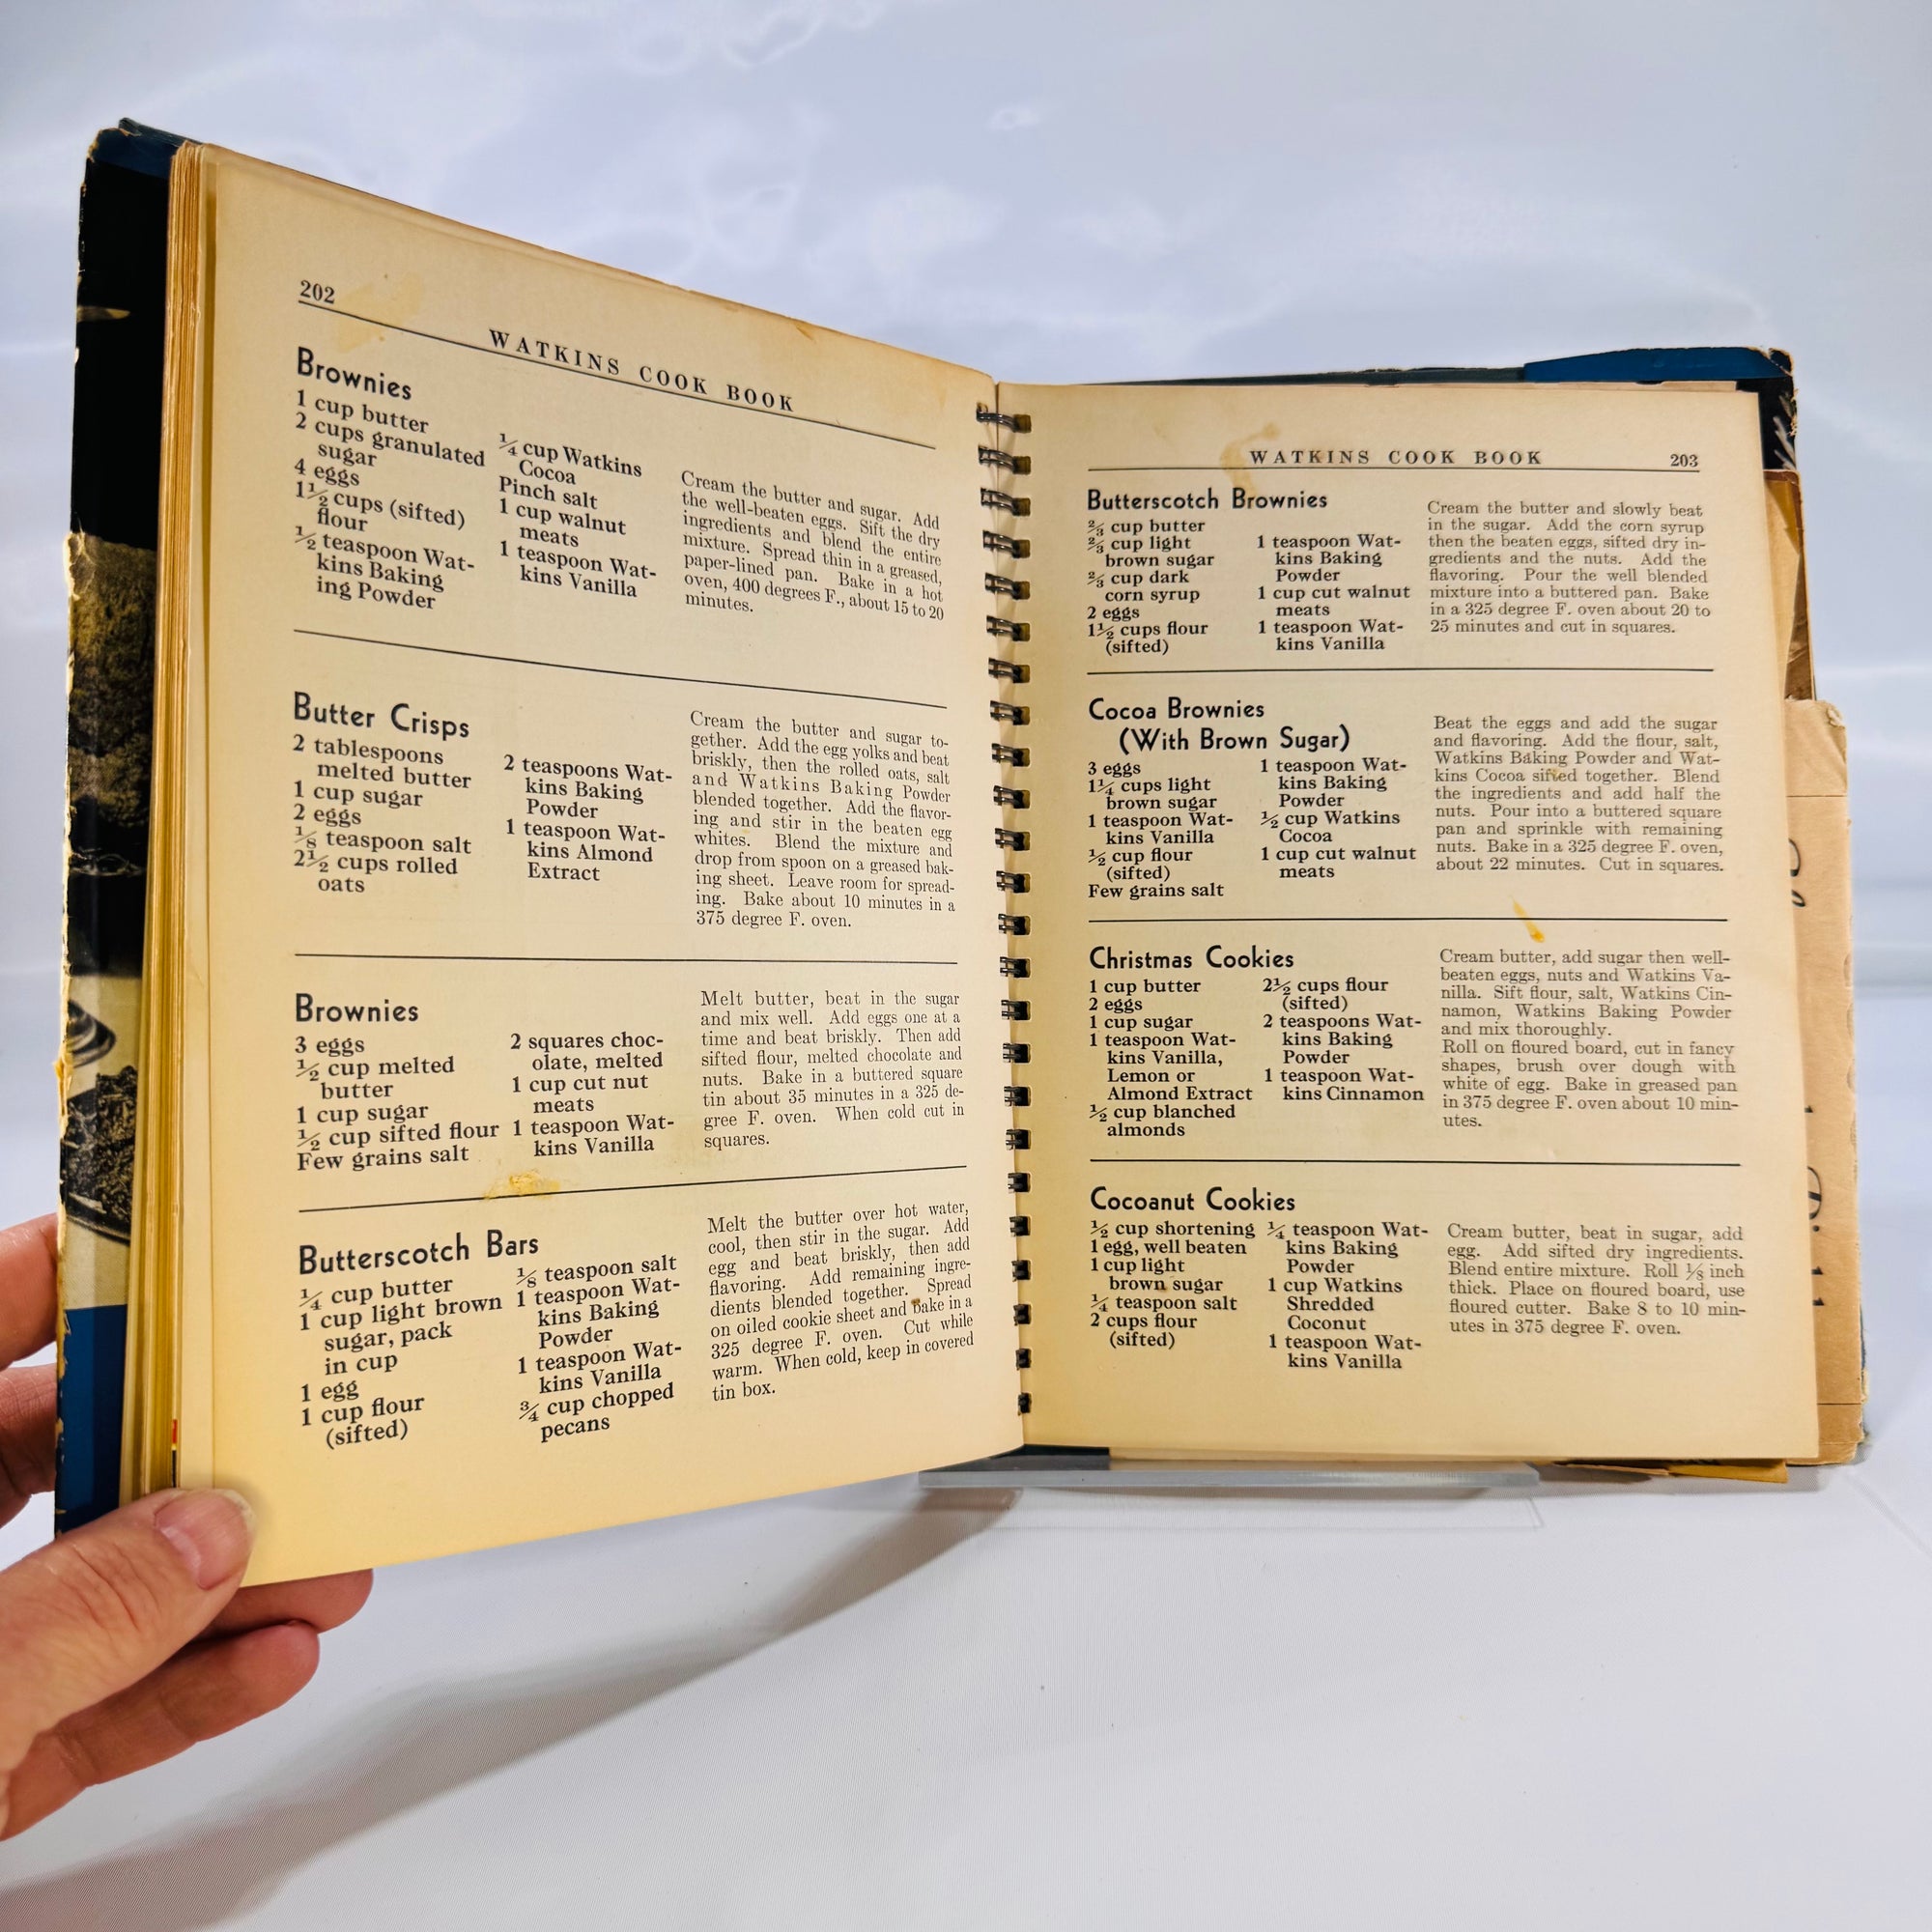 202
WATKINS COOK BOOK
Brownies
1 cup butter
2 cups granulated
sugar
4 eggs
1½ cups (sifted)
flour
½ teaspoon Wat-
kins Baking
ing Powder
¼ cup Watkins
Cocoa
Pinch salt
1 cup walnut
meats
1 teaspoon Wat-
kins Vanilla
Cream the butter and sugar. Add
the well-beaten eggs. Sift the dry
ingredients and blend the entire
mixture. Spread thin in a greased,
paper-lined pan. Bake in a hot
oven, 400 degrees F., about 15 to 20
minutes.
Butter Crisps
2 tablespoons
melted butter
1 cup sugar
2 eggs
⅛ teaspoon salt
2½ cups rolled
oats
2 teaspoons Wat-
kins Baking
Powder
1 teaspoon Wat-
kins Almond
Extract
Cream the butter and sugar to-
gether. Add the egg yolks and beat
briskly, then the rolled oats, salt
and Watkins Baking Powder
blended together. Add the flavor-
ing and stir in the beaten egg
whites. Blend the mixture and
drop from spoon on a greased bak-
ing sheet. Leave room for spread-
ing. Bake about 10 minutes in a
375 degree F. oven.
Brownies
3 eggs
½ cup melted
butter
1 cup sugar
½ cup sifted flour
Few grains salt
2 squares choc-
olate, melted
1 cup cut nut
meats
1 teaspoon Wat-
kins Vanilla
Melt butter, beat in the sugar
and mix well. Add eggs one at a
time and beat briskly. Then add
sifted flour, melted chocolate and
nuts. Bake in a buttered square
tin about 35 minutes in a 325 de-
gree F. oven. When cold cut in
squares.
Butterscotch Bars
¼ cup butter
1 cup light brown
sugar, pack
in cup
1 egg
1 cup flour
(sifted)
⅛ teaspoon salt
1 teaspoon Wat-
kins Baking
Powder
1 teaspoon Wat-
kins Vanilla
¾ cup chopped
pecans
Melt the butter over hot water,
cool, then stir in the sugar. Add
egg and beat briskly, then add
flavoring. Add remaining ingre-
dients blended together. Spread
on oiled cookie sheet and bake in a
325 degree F. oven. Cut while
warm. When cold, keep in covered
tin box.
WATKINS COOK BOOK
203
Butterscotch Brownies
⅔ cup butter
⅔ cup light
brown sugar
⅔ cup dark
corn syrup
2 eggs
1½ cups flour
(sifted)
1 teaspoon Wat-
kins Baking
Powder
1 cup cut walnut
meats
1 teaspoon Wat-
kins Vanilla
Cream the butter and slowly beat
in the sugar. Add the corn syrup
then the beaten eggs, sifted dry in-
gredients and the nuts. Add the
flavoring. Pour the well blended
mixture into a buttered pan. Bake
in a 325 degree F. oven about 20 to
25 minutes and cut in squares.
Cocoa Brownies
(With Brown Sugar)
3 eggs
1¼ cups light
brown sugar
1 teaspoon Wat-
kins Vanilla
½ cup flour
(sifted)
Few grains salt
1 teaspoon Wat-
kins Baking
Powder
½ cup Watkins
Cocoa
1 cup cut walnut
meats
Beat the eggs and add the sugar
and flavoring. Add the flour, salt,
Watkins Baking Powder and Wat-
kins Cocoa sifted together. Blend
the ingredients and add half the
nuts. Pour into a buttered square
pan and sprinkle with remaining
nuts. Bake in a 325 degree F. oven,
about 22 minutes. Cut in squares.
Christmas Cookies
1 cup butter
2 eggs
1 cup sugar
1 teaspoon Wat-
kins Vanilla,
Lemon or
Almond Extract
½ cup blanched
almonds
2½ cups flour
(sifted)
2 teaspoons Wat-
kins Baking
Powder
1 teaspoon Wat-
kins Cinnamon
Cream butter, add sugar then well-
beaten eggs, nuts and Watkins Va-
nilla. Sift flour, salt, Watkins Cin-
namon, Watkins Baking Powder
and mix thoroughly.
Roll on floured board, cut in fancy
shapes, brush over dough with
white of egg. Bake in greased pan
in 375 degree F. oven about 10 min-
utes.
Cocoanut Cookies
½ cup shortening
1 egg, well beaten
1 cup light
brown sugar
¼ teaspoon salt
2 cups flour
(sifted)
¼ teaspoon Wat-
kins Baking
Powder
1 cup Watkins
Shredded
Coconut
1 teaspoon Wat-
kins Vanilla
Cream butter, beat in sugar, add
egg. Add sifted dry ingredients.
Blend entire mixture. Roll ⅛ inch
thick. Place on floured board, use
floured cutter. Bake 8 to 10 min-
utes in 375 degree F. oven.